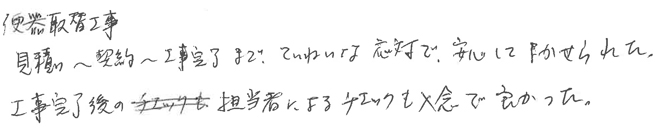 便器取替工事
見積〜契約〜工事完了まで、ていねいな応対で、安心してまかせられた。
工事完了後の担当者によるチェックも入念で良かった。